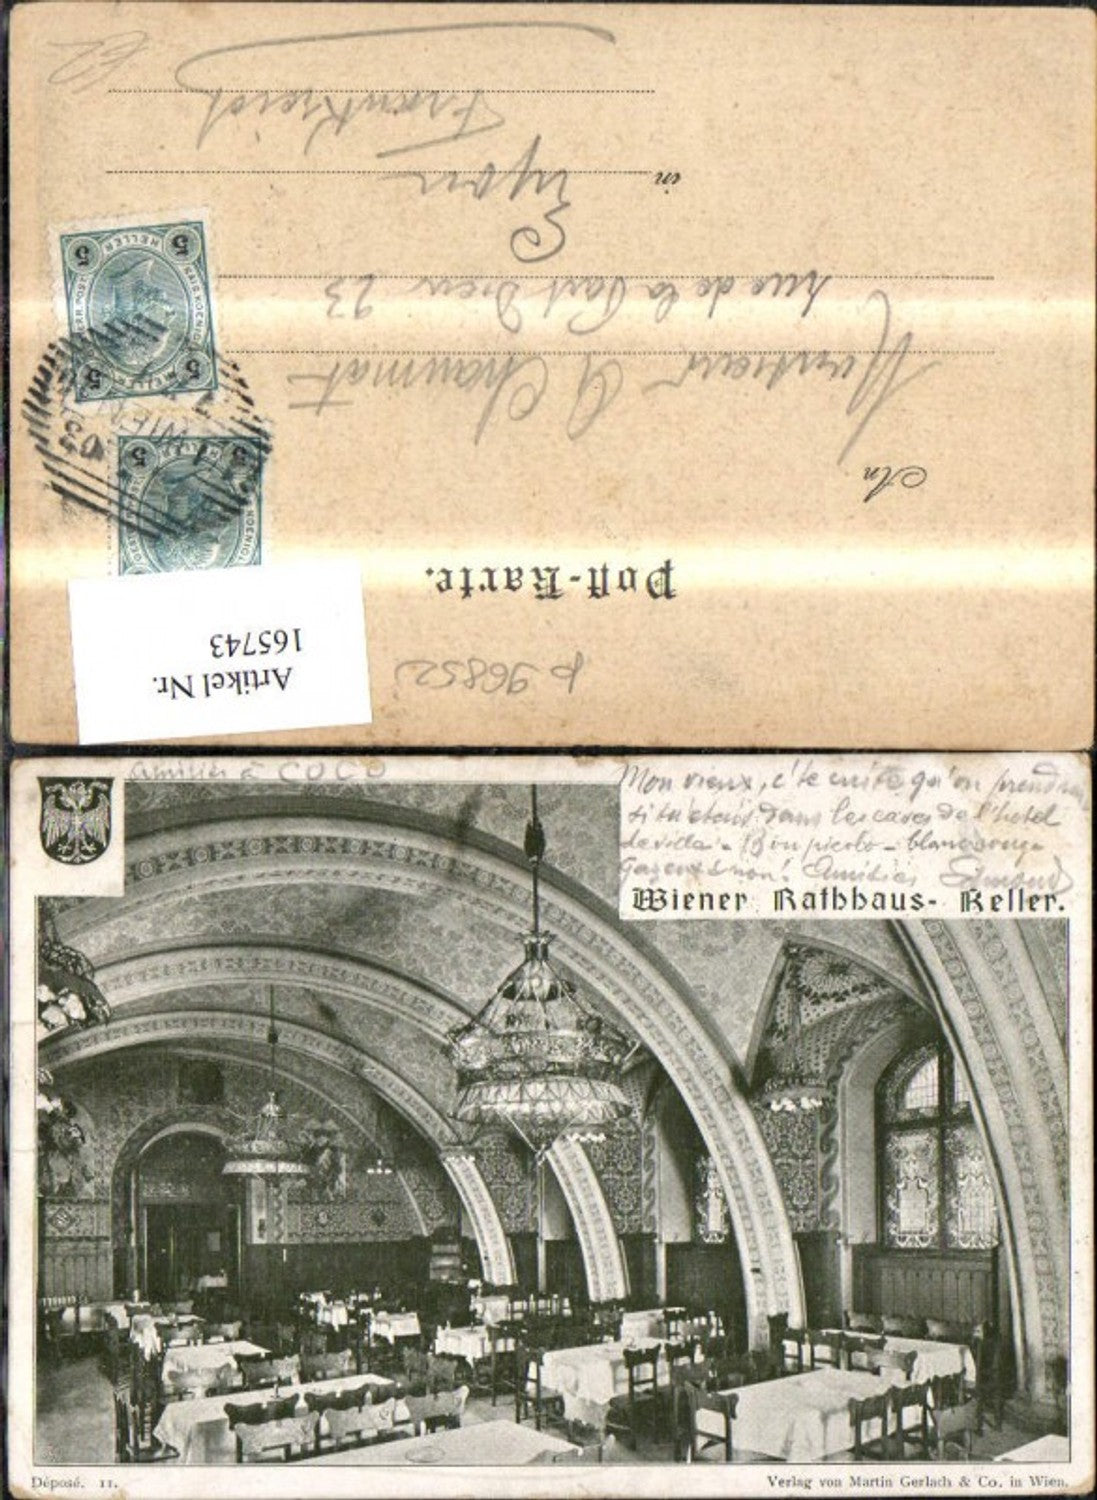 Post-Karte.
An
Monsieur J Chaumat
rue de la Part Dieu 23
in
Lyon
Frankreich
p 96852
Artikel Nr.
165743
5 HELLER 5
5 HELLER 5
5 HELLER 5
WIEN
03
amitiés à COCO
Mon vieux, c'te cuite qu'on prendrait
si tu étais dans les caves de l'hotel
de ville. Bon picolo - blanc rouge
Amitiés
Wiener Rathhaus-Keller.
Déposé. 11.
Verlag von Martin Gerlach & Co. in Wien.